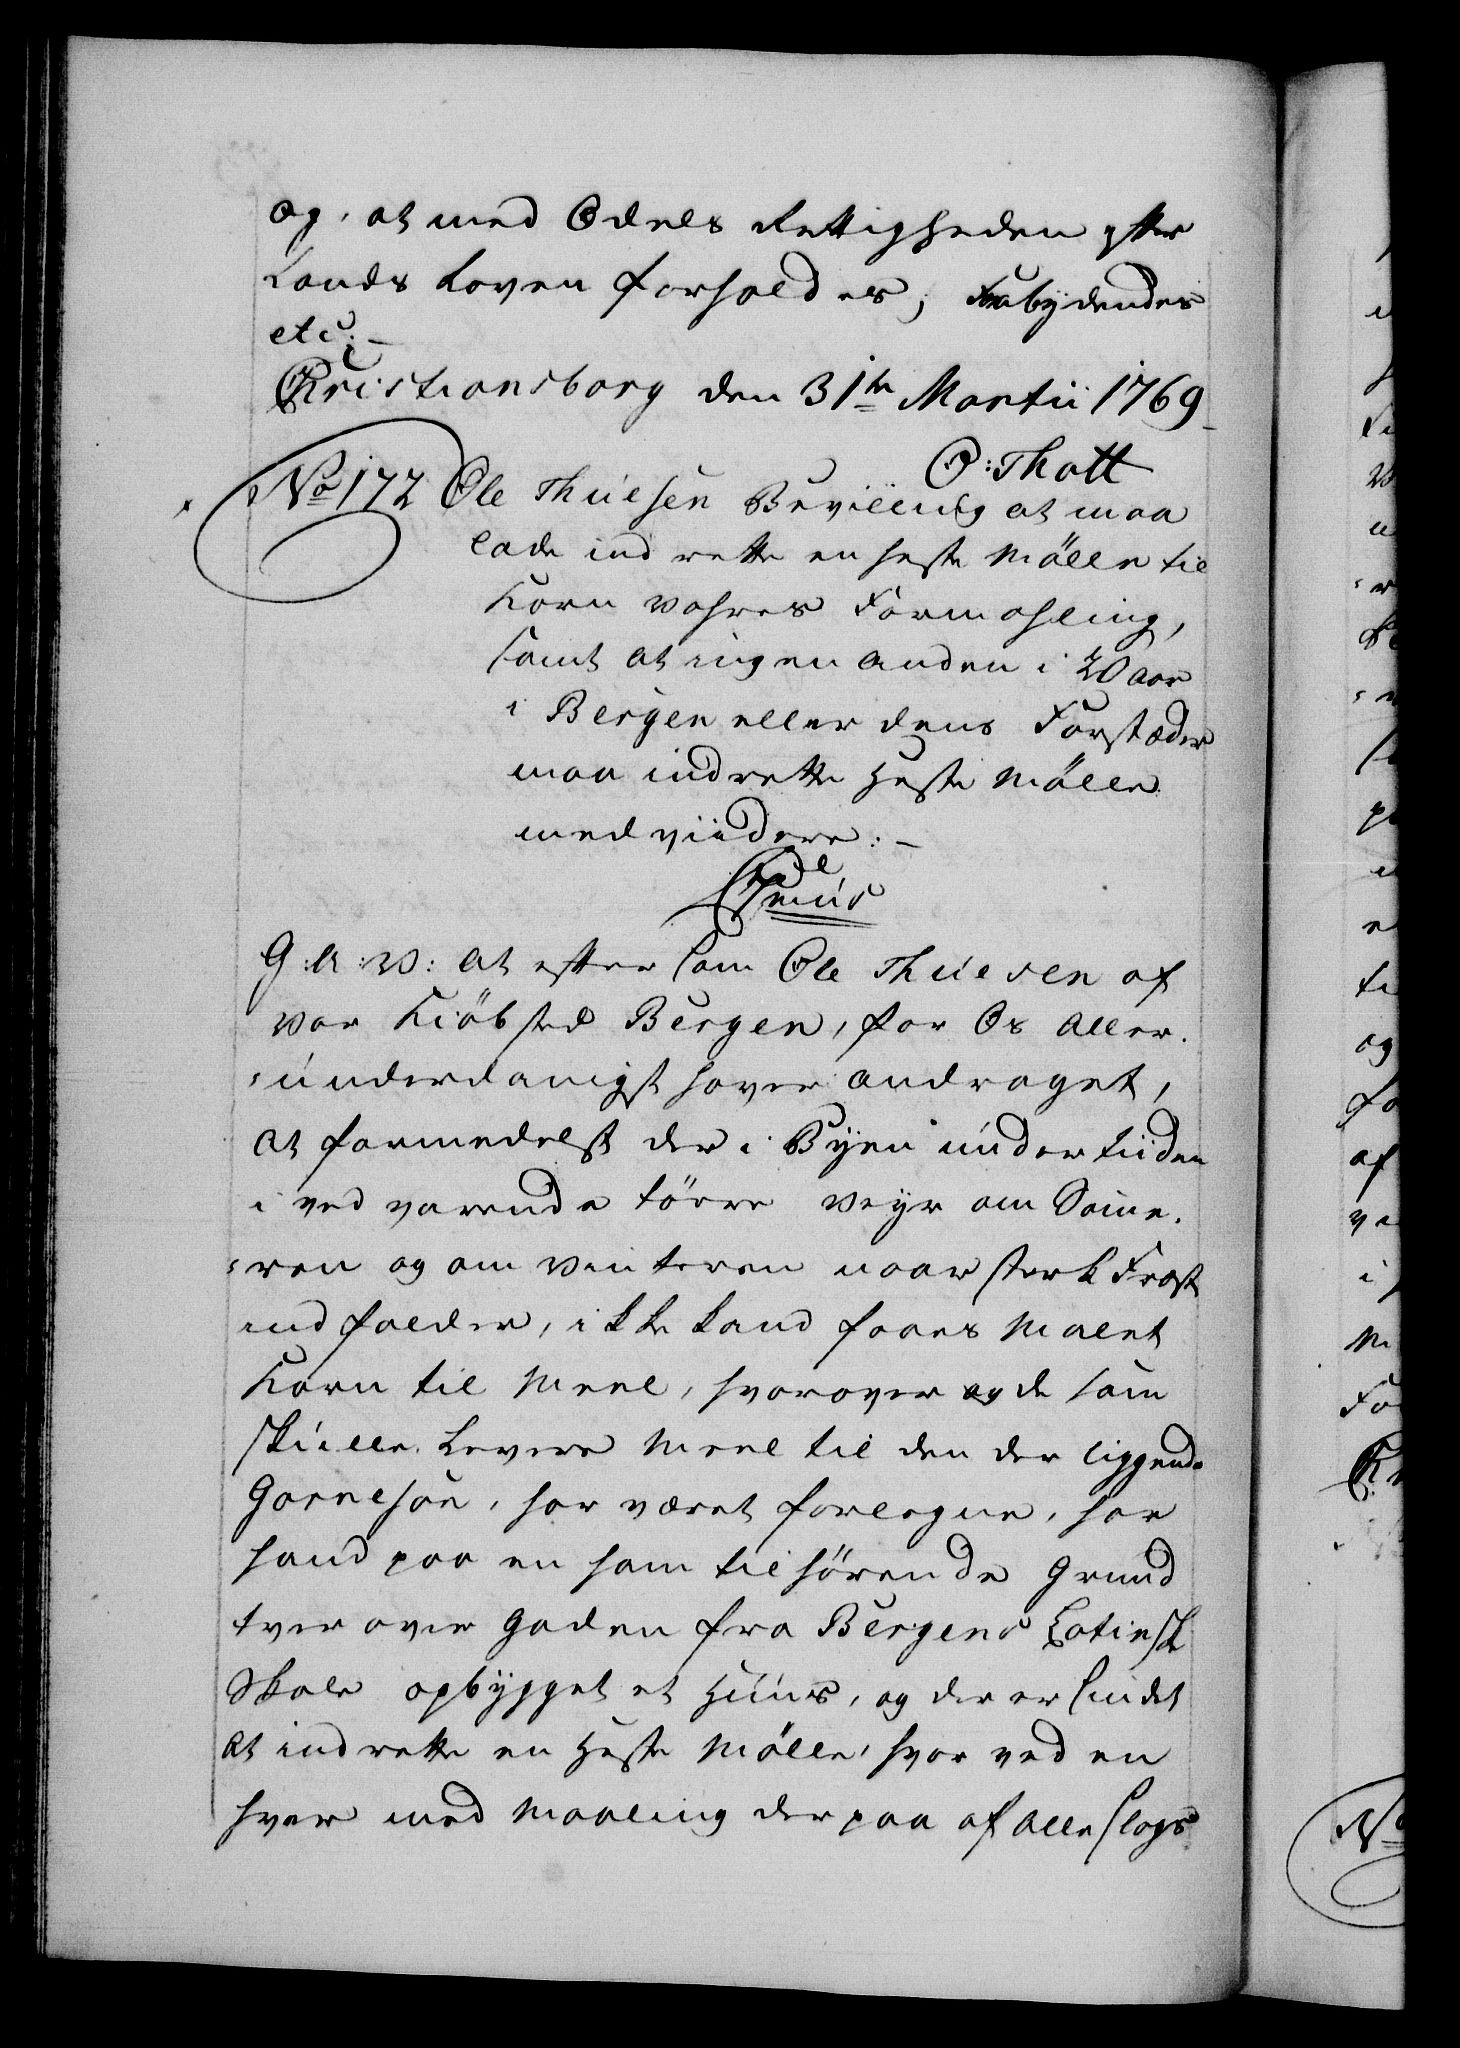 og, at med Odels Rettigheden efter
Lands Loven forholdes; Forbydendes
etc: –
Christiansborg den 31te Martii 1769
O: Thott
No 172 Ole Thuesen Bevilling at maa
lade indrette en heste Mölle til
Korn Vahres Formahling,
samt at ingen anden i 20 Aar
i Bergen eller dens Forstæder
maa indrette Heste Mölle
med viidere: –
G: A: V: At eftersom Ole Thuesen af
vor Kiöbsted Bergen, for Os aller-
underdanigst haver andraget,
at formedelst der i Byen undertiiden
i vedvarende törre Veyr om Somme-
ren og om Vinteren naar sterk Frost
indfalder, ikke kand faaes Malet
Korn til Meel, hvorover og de som
skulle Levere Meel til den der liggende
Garneson, har været forlegne, har
hand paa en ham tilhörende Grund
tver over Gaden fra Bergens Latinsk
Skole opbygget et Huus, og der er sindet
at indrette en Heste Mölle, hvor ved en
hver med Maaling der paa af alle slags